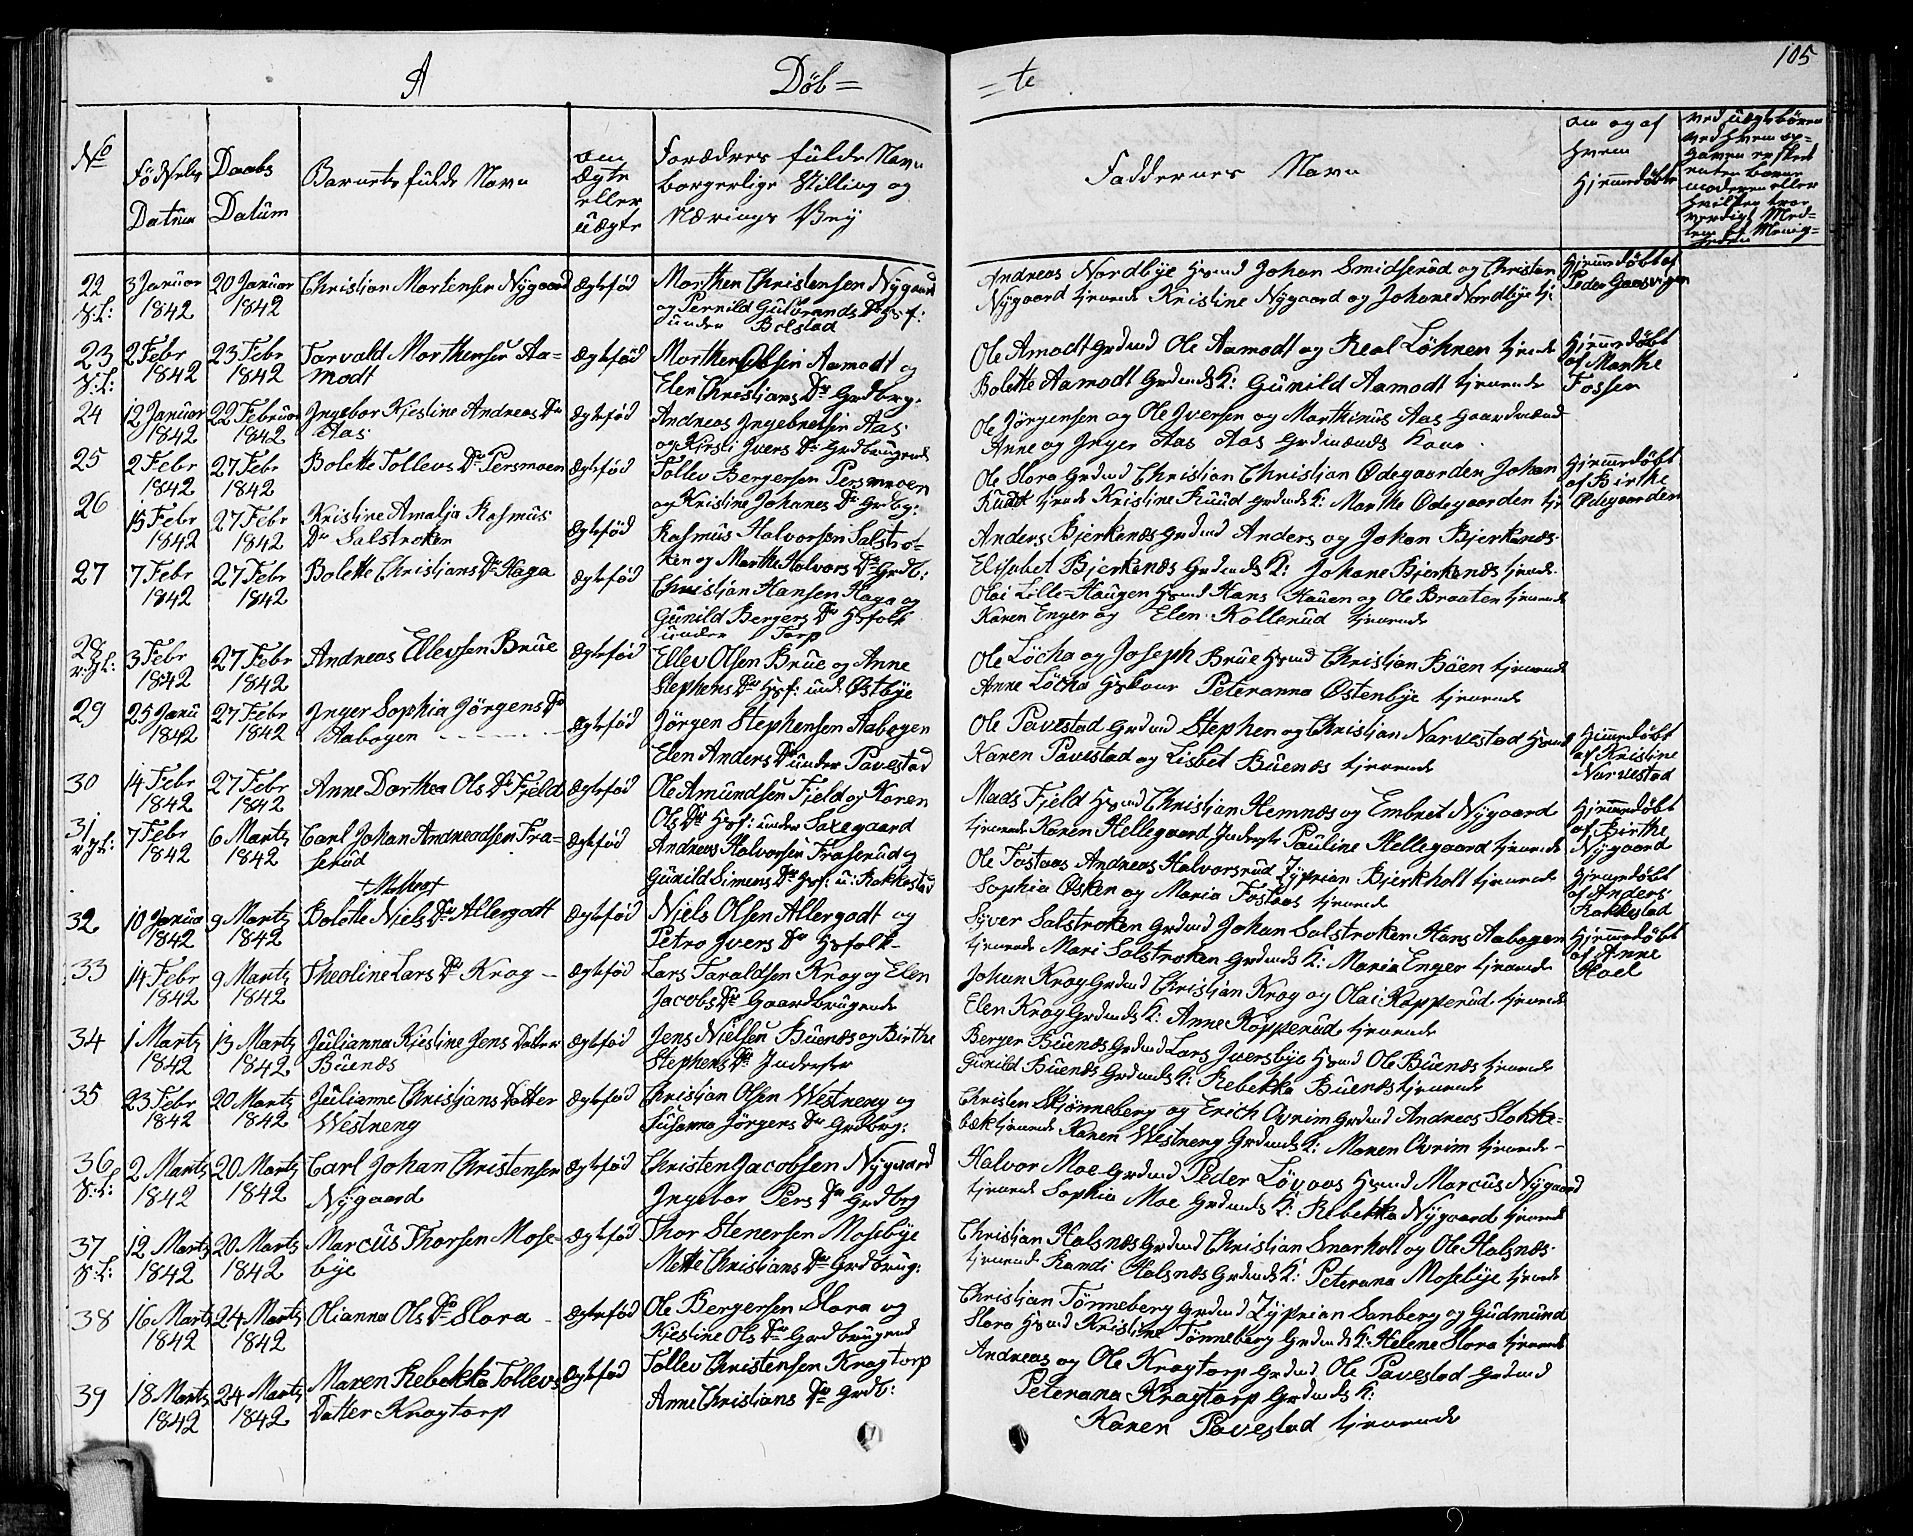 105
A Döb= =te
No
Födsels Datum
Daabs Datum
Barnets fulde Navn
om ægte eller uægte
Forædres fulde Navn borgerlige Stilling og Nærings Vey
Faddernes Navn
om og af hvem Hjemmedöbte
22 3 Januar 1842 20 Januar 1842 Christian Mortensen Nygaard Ægtefód
Morthen Christensen Nygaard
og Pernild Gulbrands Dr Hsf:
under Bolstad
Andreas Nordbye Hsmd Johan Smidserud og Christan
Nygaard tjenende Kristine Nygaard og Johane Nordbye tj:
Hjemmedøbt af
Peder Gaasvigen
23 2 Febr 1842 23 Febr 1842 Torvald Morthensen Aa-
modt Ægtefód
Morthen Olsen Aamodt og
Elen Christians Dr Grdbrg:
Ole Amodt Grdmd Ole Aamodt og Real Löknen tjenende
Bolette Aamodt Grdmds K: Gunild Aamodt tjenende
Hjemmedöbt
af Marthe
Fosser
24 12 Januar 1842 22 Februar 1842 Ingebor Kjestine Andreas Dr
Aas Ægtefód
Andreas Ingebretsen Aas
og Kirsti Ivers Dr Grdbrugende
Ole Jörgensen og Ole Iversen og Marthinus Aas Gaardmænd
Anne og Inger Aas Aas Grdmænds Kaner
25 2 Febr 1842 27 Febr 1842 Bolette Tollevs Dr Persmoen Ægtefód
Tollev Bergersen Persmoen
og Kristine Johanes Dr Grdbg:
Ole Slora Grdmd Christian Christian Ödegaarden Johan
Ruud tjende Kristine Ruud Grdmds K: Marthe Ödegaarden tj
Hjemmedöbt
af Birthe
Ödegaarden
26 15 Febr 1842 27 Febr 1842 Kristine Amalja Rasmus
Dr Salstroken Ægtefód
Rasmus Halvorsen Salstro-
ken og Marthe Halvors Dr Grdb:
Anders Bjerkenæs Grdmd Anders og Johan Bjerkenæs
Elisabet Bjerkenæs Grdmds K: Johane Bjerkenæs tjende
27 7 Febr 1842 27 Febr 1842 Bolette Christians Dr Haga Ægtefód
Christian Hansen Haga og
Gunild Bergers Dr Hsfolk
under Torp
Olai Lille-Haugen Hsmd Hans Hauen og Ole Braaten tjenende
Karen Enger og Elen Kollerud tjenende
28 3 Febr 1842 27 Febr 1842 Andreas Ellevsen Brue Ægtefód
Ellev Olsen Brue og Anne
Stephens Dr Hsf: und Østbye
Ole Löcha og Joseph Brue Hsmd Christian Büen tjenende
Anne Löcha Hskone Peteranna Østenbye tjenende
29 25 Janu 1842 27 Febr 1842 Inger Sophia Jörgens Dr
Aabogen Ægtefód
Jörgen Stephensen Aabogen
Elen Anders Dr under Pavestad
Ole Pavestad Grdmd Stephen og Christian Narvestad Hsmd
Karen Pavestad og Lisbet Buenæs tjenende
Hjemmedöbt
af Kristine
Narvestad
30 14 Febr 1842 27 Febr 1842 Anne Dorthea Ols Dr Fjeld Ægtefód
Ole Amundsen Fjeld og Karen
Ols Dr Hsf: under Saxegaard
Mads Fjeld Hsmd Christian Hemnæs og Embret Nygaard
tjenende Karen Hellegaard Inderste Pauline Hellegaard tjenende
Hjemmedöbt
af Birthe
Nygaard
31 7 Febr 1842 6 Marts 1842 Carl Johan Andreadsen Fra-
serud Ægtefód
Andreas Halvorsen Fraserud og
Gunild Simens Dr Hsf: u: Rakkestad
Ole Fostaas Andreas Halvorsrud Zyprian Bjerkholt tjenende
Sophia Osken og Maria Fostaas tjenende
Hjemmedöbt
af Anders
Rakkestad
32 10 Janua 1842 9 Marts 1842 Bolette Niels Dr Allergodt Ægtefód
Niels Olsen Allergodt og
Petro Ivers Dr Hsfolk-
Syver Salstroken Grdmd Johan Salstroken Hans Aabogen
tjenende Mari Salstroken Grdmds K: Maria Enger tjenende
Hjemmedöbt
af Anne
Hoel
33 14 Febr 1842 9 Marts 1842 Theoline Lars Dr Krog - Ægtefód
Lars Taraldsen Krog og Elen
Jacobs Dr Gaardbrugende
Johan Krog Grdmd Christian Krog og Olai Kopperud tjenende
Elen Krog Grdmds K: Anne Kopperud tjenende
34 1 Marts 1842 13 Marts 1842 Julianna Kjestine Jens Datter
Buenæs Ægtefód
Jens Nielsen Buenæs og Birthe
Stephens Dr Inderster
Berger Buenæs Grdmd Lars Iversbye Hsmd Ole Buenæs tjenende
Gunild Buenæs Grdmds K: Rebekka Buenæs tjenende
35 23 Febr 1842 20 Marts 1842 Julianne Christians Datter
Westneng Ægtefód
Christian Olsen Westneng og
Susanna Jörgens Dr Grdbrg:
Christen Skjönneberg og Erich Ovrim Grdmd Andreas Slokke-
bæk tjenende Karen Westneng Grdmds K: Maren Ovrim tjenende-
36 2 Marts 1842 20 Marts 1842 Carl Johan Christensen
Nygaard Ægtefód
Christen Jacobsen Nygaard
Ingebor Pers Dr Grdbrg
Halvor Moe Grdmd Peder Lövaas Hsmd Marcus Nygaard
tjenende Sophia Moe Grdmds K: Rebekka Nygaard tjenende
37 12 Marts 1842 20 Marts 1842 Marcus Thorsen Mose-
bye Ægtefód
Thor Stenersen Mosebye
Mette Christians Dr Grdbrug:
Christian Halsnæs Grdmd Christian Snarholt og Ole Halsnæs
tjenende Randi Halsnæs Grdmds K: Peterana Mosebye tjende
38 16 Marts 1842 24 Marts 1842 Olianna Ols Dr Slora - Ægtefód
Ole Bergersen Slora og
Kjestine Ols Dr Gardbrugend
Christian Tönneberg Grdmd Zyprian Sanberg og Gudmund
Slora Hsmd Kristine Tönneberg Grdmds K: Helene Slora tjenende
39 18 Marts 1842 24 Marts 1842 Maren Rebekka Tollevs
Datter Krogtorp Ægtefód
Tollev Christensen Krogtorp
Anne Christians Dr Grdb:
Andreas og Ole Krogtorp Grdmd Ole Pavestad Grdmd
Peterana Krogtorp Grdmds K:
Karen Pavestad tjenende